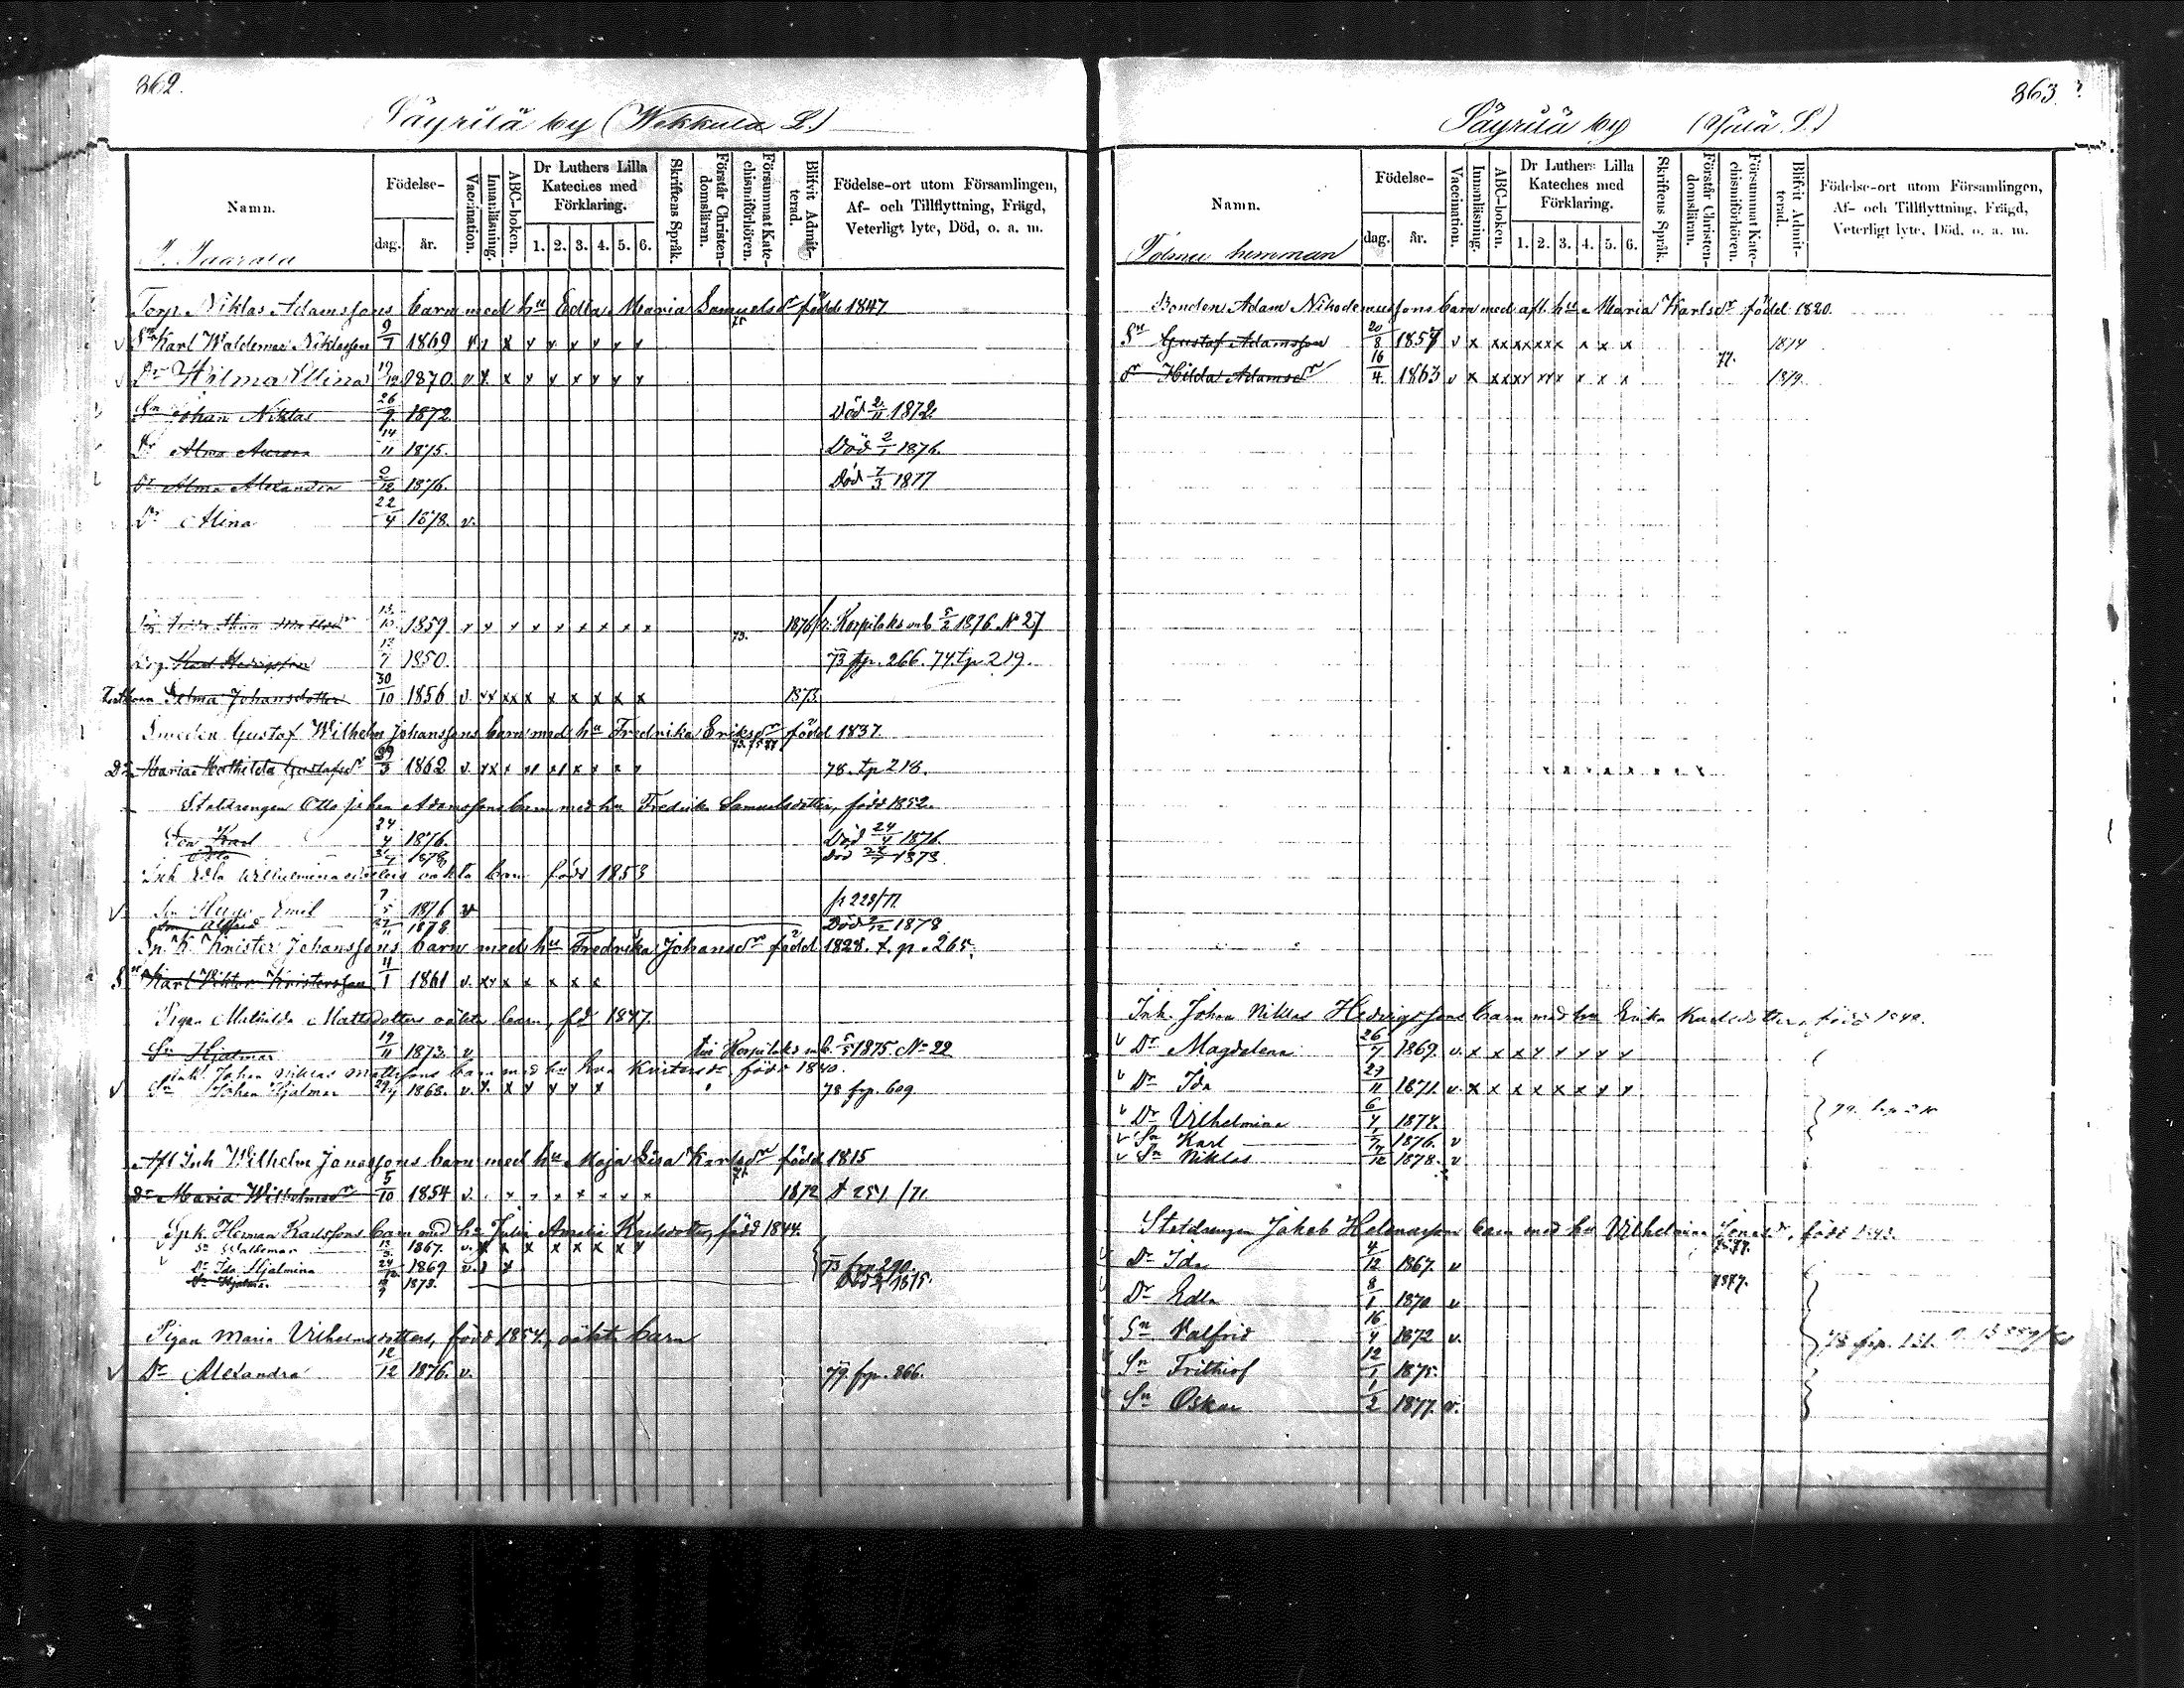 362.
Säyrilä by (Wekkula L.)
Namn.
Födelse-
dag.
år.
Vaccination.
Innanläsning.
ABC-boken.
Dr Luthers Lilla Kateches med Förklaring.
1. 2. 3. 4. 5. 6.
Skriftens Språk.
Förstår Christendomsläran.
Försummat Katechismiförhören.
Blifvit Admitterad.
Födelse-ort utom Församlingen, Af- och Tillflyttning, Frägd, Veterligt lyte, Död, o. a. m.
Torp. Niklas Adamssons barn med hu Edla Maria Samuelsdr född 1847
v Sn Karl Waldemar Niklasson 9/7 1869 v x x x x x x x x
v Dr Hilma Ellina 19/12 1870. v x x x x x x x x
Sn Johan Niklas 26/9 1872. Död 2/11 1872.
Dr Alma Aurora 14/11 1875. Död 2/1 1876.
Dr Alma Alexandra 2/12 1876. Död 7/3 1877
Dr Alina 22/4 1878. v.
1859 x x x x x x x x x 73. 1876 Korpilaks mb 5/2 1876 No 27
13/7 1850. 73 fp. 266. 74. tp 219.
Selma Johansdotter 30/10 1856 v. xx xx x x x x x x 1873.
Smeden Gustaf Wilhelm Johanssons barn med hu Fredrika Eriksdr född 1837
Dr Maria Mathilda Gustafsdr 29/3 1862 v. xx x xx xx x x x x 78. tp 218.
Statdrengen Otto Johan Adamssons barn med hu Fredrika Samuelsdotter, född 1852.
Son Karl 24/4 1876. Död 24/4 1876.
Otto 1878 Död 1878.
Inh Edla Wilhelmina oäkta barn född 1853
v Sn Hugo Emil 7/5 1876 v fr 228/77.
Sn Alfred 22/11 1878. Död 1878
Krister Johanssons barn med hu Fredrika Johansdr född 1828. t. p. 265.
Sn Karl Viktor Kristersson 4/1 1861 v. xx x x x x x
Pigan Mathilda Mattsdotters oäkta barn, fdd 1847.
Sn Hjalmar 19/11 1873. v. till Korpilaks mb. 5/5 1875. No 22
Inh. Johan Niklas Mattssons barn med hu Eva Kristersdr född 1840.
v Sn Johan Hjalmar 29/4 1868. v. x. x x x x x 78 frp. 609
Afl Inh Wilhelm Janssons barn med hu Maja Lisa Karlsdr född 1815
Dr Maria Wilhelmsdr 5/10 1854 v. x x x x x x x 1872 t 251/71.
Spk. Herman Karlssons barn med hu Julia Amalia Karlsdotter, född 1844.
Sn Waldemar 1867. v. x x x x x x x x
Dr Ida Hjalmina 24/12 1869 v. x x 73 frp 290.
Sn Hjalmar 1873. Död 1875.
Pigan Maria Vilhelmsdotters, född 1854, oäkta barn
v Dr Alexandra 12/12 1876. v. 79. frp. 866.
863.
Säyrilä by (Ylä L.)
Namn.
hemman
Födelse-
dag.
år.
Vaccination.
Innanläsning.
ABC-boken.
Dr Luthers Lilla Kateches med Förklaring.
1. 2. 3. 4. 5. 6.
Skriftens Språk.
Förstår Christendomsläran.
Försummat Katechismiförhören.
Blifvit Admitterad.
Födelse-ort utom Församlingen, Af- och Tillflyttning, Frägd, Veterligt lyte, Död, o. a. m.
Bonden Adam Nikodemussons barn med afl. hu Maria Karlsdr född 1820.
Sn Gustaf Adamsson 20/8 1857 v x xx xx xx x x x x 1874
Dr Hilda Adamsdr 16/4 1863 v x xx xx xx x x x x 77. 1879
x x x x x x x x
Inh. Johan Niklas Hedvigssons barn med hu Erika Karlsdotter, född
v Dr Magdalena 26/7 1869. v. x x x x x x x x
v Dr Ida 29/11 1871. v. x x x x x x x x
v Dr Vilhelmina 6/4 1874.
v Sn Karl 1876. v
v Sn Niklas 1878. v
Statdrengen Jakob Helenasson barn med hu Vilhelmina född
Dr Ida 4/12 1867. v
Dr Edla 8/1 1870 v 1877.
Sn Valfrid 16/4 1872 v.
Sn Frithiof 12/1 1875.
Sn Oskar 1/2 1877. v.